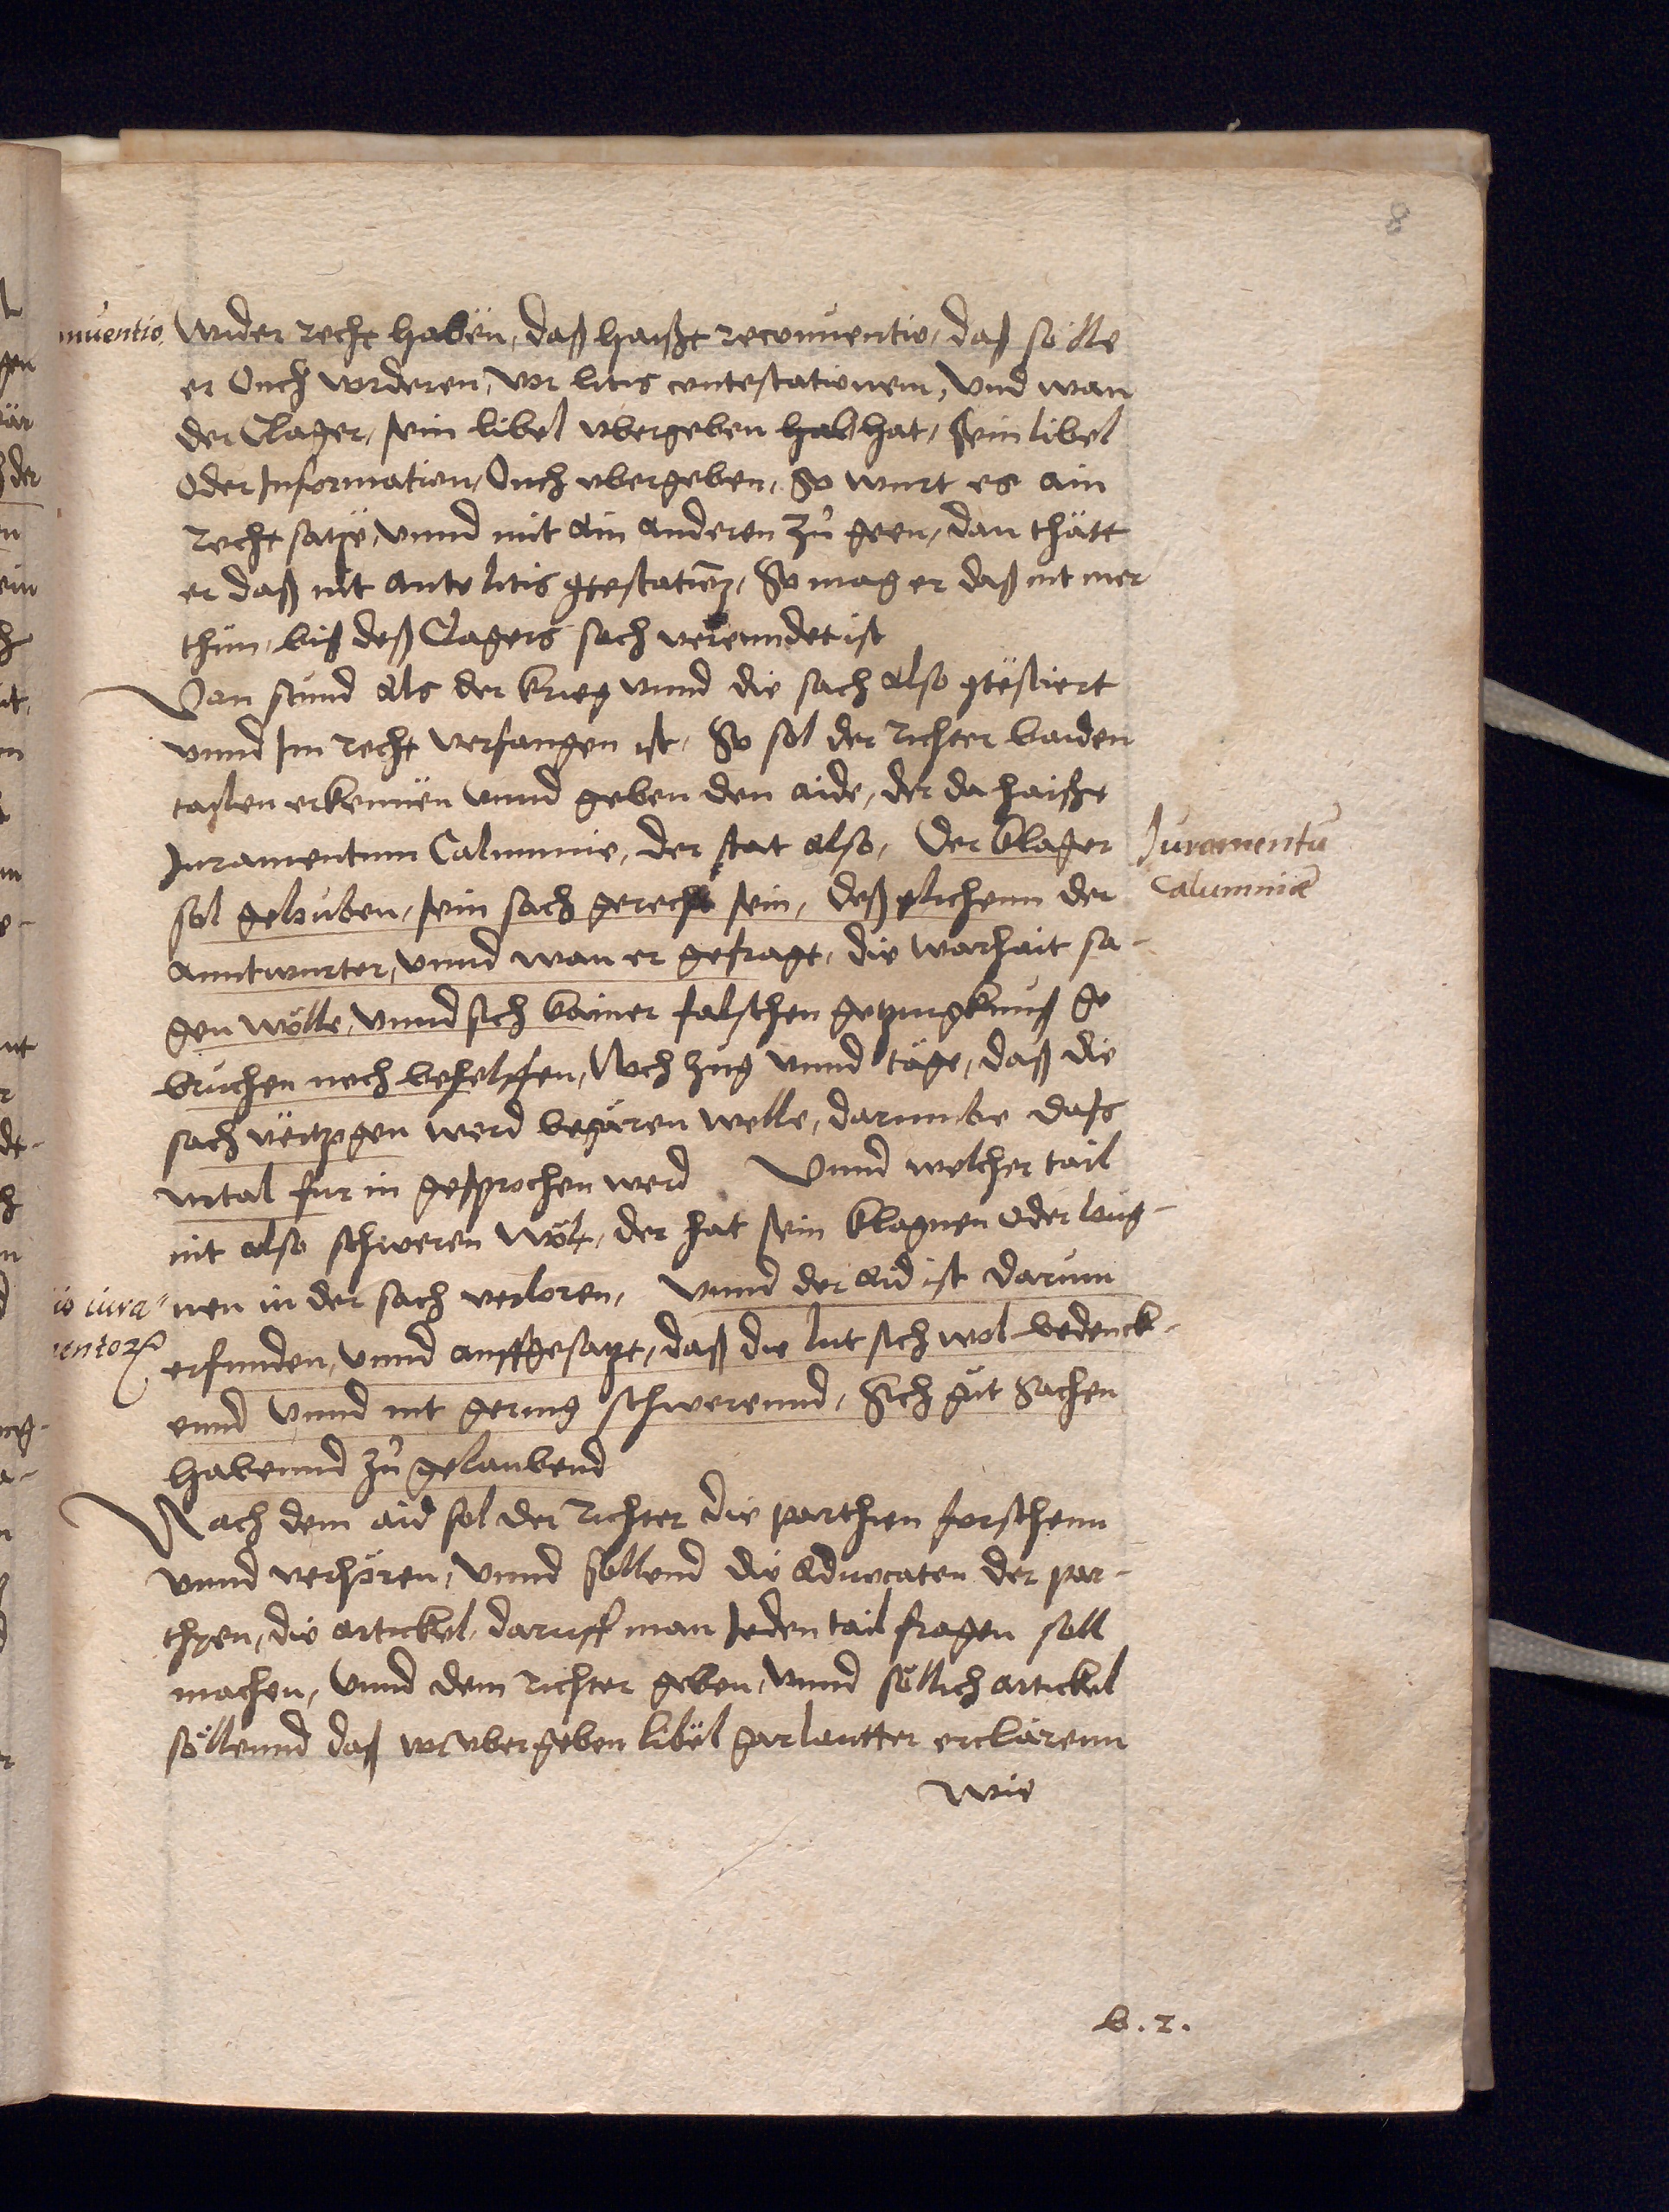 8
nuentio.
Wider recht haben, daß haißt reconuentio, daß sölle
er Ouch vorderen, vor litis contestationem, Vnd wan
der Clager, sein libel vbergeben hab hat, Sein libel
Oder Information, Ouch vbergeben, So wurt es ain
recht satze, vnnd mit ain anderen zů geen, dan thätt
er daß nit ante litis 9testatiōnē, So mag er daß nit mer
thůn, biß deß Clagers sach verenndet ist
Von stund als der krieg vnnd die sach also 9testiert
vnnd Im recht verfangen ist, So sol der richter baiden
tailen erkennen vnnd geben den aide, der da haißt
Juramentum Calumnie, der stat also, Der klager
Juramentū
Calumniæ
sol gelouben, sein sach gerecht sein, deß glichenn der
anntwurter, vnnd wan er gefragt, die warhait sa-
gen wölle, vnnd sich kainer falschen getzugknuß ge
bruchen noch behelffen, Noch zug vnnd täge, daß die
sach vertzogen werd begären welle, darumbe dass
vrtal fur in gesprochen werd Vnnd welcher tail
nit also schweren wölt, der hat sein klagnen oder loug-
io iura-
mentoꝝ
nen in der sach verloren, Vnnd der aid ist darum
erfunden, vnnd auffgesatzt, daß die lut sich wol bedenck-
ennd vnnd nit gering schwerennd, Sich gůt Sachen
habennd zů gelaubend
Nach dem aid sol der richter die parthien forschenn
vnnd verhören, vnnd söllend die aduocaten der par-
thyen, die artickel, daruff man Jeden tail fragen soll
machen, Vnnd dem richter geben, Vnnd söllich artickel
söllennd daß vorvbergeben libel gar lautter erclärenn
Wie
b.2.